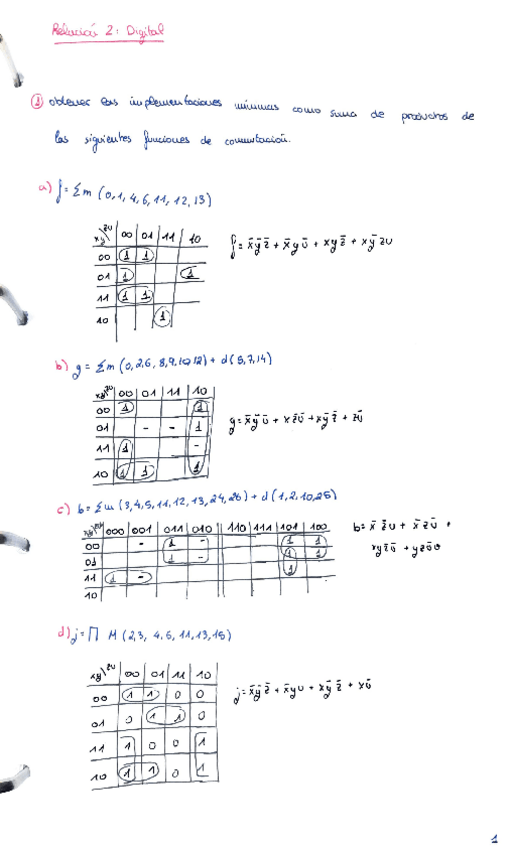 Relación 2: Digital
① obtener las implementaciones mínimas como suma de productos de
las siguientes funciones de conmutación.
a) f = Σm (0, 1, 4, 6, 11, 12, 13)
xy\zu 00 01 11 10
00 1 1
01 1 1
11 1 1
10 1
f = x̄ȳz̄ + x̄yū + xyz̄ + xȳzu
b) g = Σm (0, 2, 6, 8, 9, 10, 12) + d(5, 7, 14)
xy\zu 00 01 11 10
00 1 1
01 - - 1
11 1 -
10 1 1 1
g = x̄ȳū + xz̄ū + xȳz̄ + zū
c) b = Σm (3, 4, 5, 11, 12, 13, 24, 26) + d(1, 2, 10, 25)
000 001 011 010 110 111 101 100
00 - 1 - 1 1
01 1 - 1 1
11 1 - 1
10
d) j = ∏ M (2, 3, 4, 6, 11, 13, 15)
xy\zu 00 01 11 10
00 1 1 0 0
01 0 1 1 0
11 1 0 0 1
10 1 1 0 1
j = x̄ȳz̄ + x̄yu + xȳz̄ + xū
1